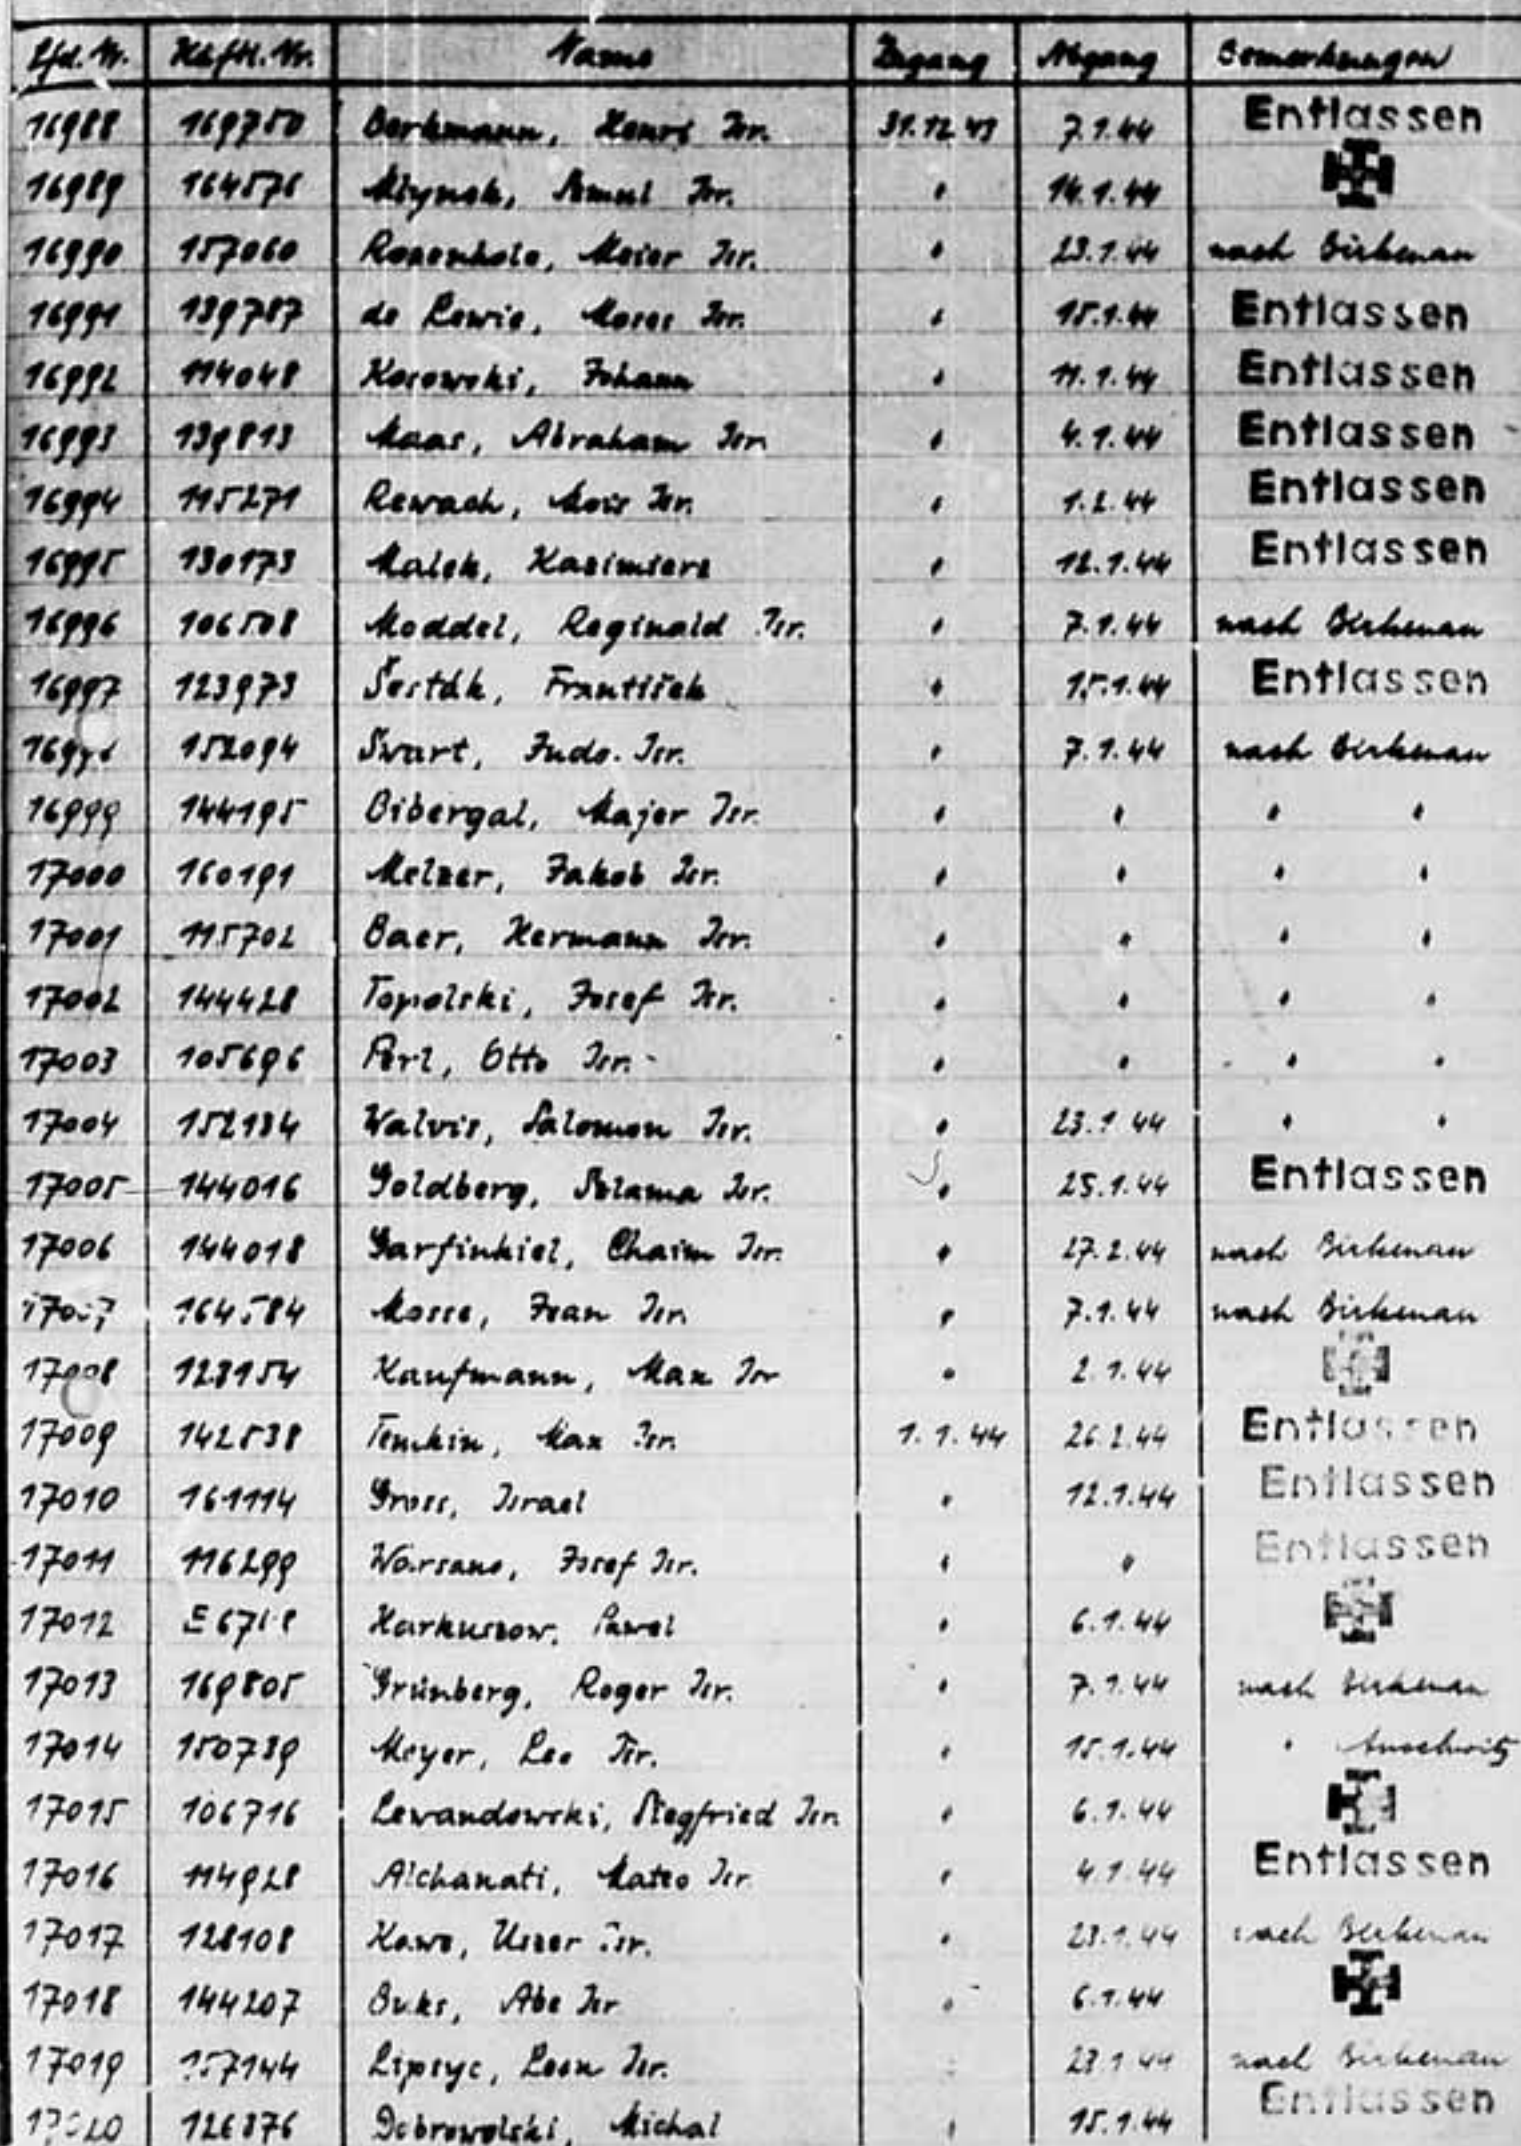 Lfd. Nr. Häftl. Nr. Name Zugang Abgang Bemerkungen
16988 169750 Berkmann, Henri Isr. 31.12.43 7.1.44 Entlassen
16989 164576 Szmul Isr. " 14.1.44
16990 157060 Meier Isr. " 23.1.44 nach Birkenau
16991 139787 de Lewie, Moses Isr. " 15.1.44 Entlassen
16992 114048 Kosowski, Johann " 11.1.44 Entlassen
16993 139813 Maas, Abraham Isr. " 4.1.44 Entlassen
16994 115271 Rewach, Mois Isr. " 1.2.44 Entlassen
16995 130173 Malek, Kazimierz " 12.1.44 Entlassen
16996 106508 Moddel, Reginald Isr. " 7.1.44 nach Birkenau
16997 123973 Šesták, František " 15.1.44 Entlassen
152094 Swart, Juda Isr. " 7.1.44 nach Birkenau
16999 144195 Bibergal, Majer Isr. " " " "
17000 160191 Melzer, Jakob Isr. " " " "
17001 115702 Baer, Hermann Isr. " " " "
17002 144428 Topolski, Josef Isr. " " " "
17003 105696 Perl, Otto Isr. " " " "
17004 152134 Walvis, Salomon Isr. " 23.1.44 " "
17005 144016 Goldberg, Szlama Isr. " 25.1.44 Entlassen
17006 144018 Garfinkiel, Chaim Isr. " 27.2.44 nach Birkenau
164584 Mosse, Jean Isr. " 7.1.44 nach Birkenau
17008 123154 Kaufmann, Max Isr. " 2.1.44
17009 142538 Temkin, Max Isr. 1.1.44 26.2.44 Entlassen
17010 161114 Gross, Israel " 12.1.44 Entlassen
17011 116299 Warsano, Josef Isr. " " Entlassen
17012 Harkuszow, Pawel " 6.1.44
17013 169805 Grünberg, Roger Isr. " 7.1.44 nach Birkenau
17014 150739 Meyer, Leo Isr. " 15.1.44 " Auschwitz
17015 106716 Lewandowski, Siegfried Isr. " 6.1.44
17016 114928 Alchanati, Mateo Isr. " 4.1.44 Entlassen
17017 128108 Kawe, Uszer Isr. " 23.1.44 nach Birkenau
17018 144207 Buks, Abe Isr. " 6.1.44
17019 157144 Lipsyc, Leon Isr. " 23.1.44 nach Birkenau
17020 126376 Dobrowolski, Michal " 15.1.44 Entlassen